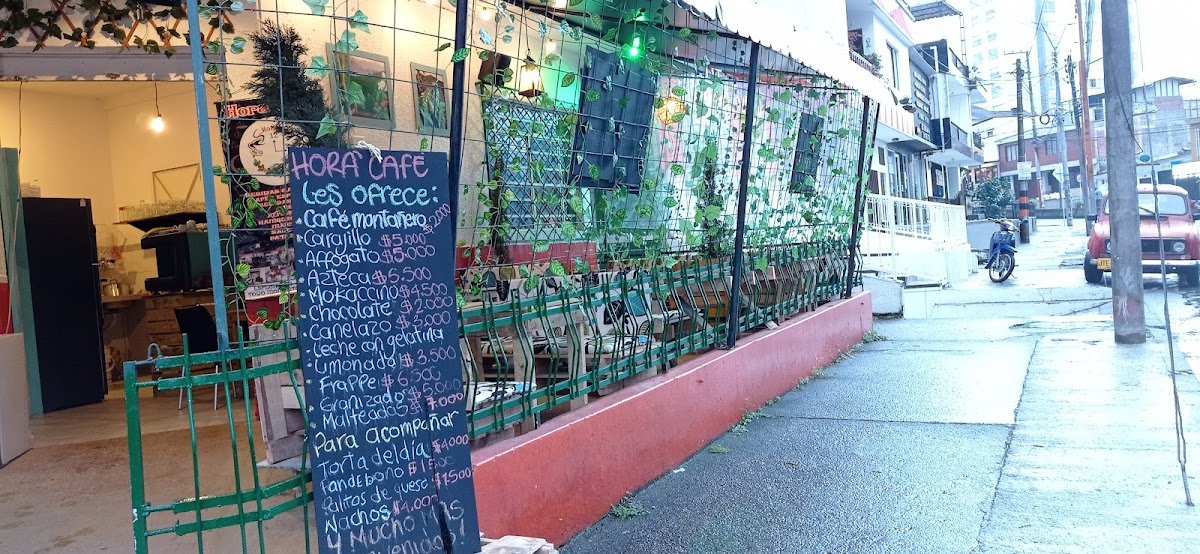 HORA CAFÉ
Les ofrece:
Café montañero $2.000
Carajillo $5.000
Affogato $5.000
Azteca $6.500
Mokaccino $4.500
Chocolate $2.000
Canelazo $5.000
Leche con gelatina
Limonada $3.500
Frappe $6.500
Granizado $5.000
Malteadas $7.000
Para acompañar
Torta del día $4.000
Pandebono $1.500
Palitos de queso $1.500
Nachos $4.000
Y MUCHO MAS